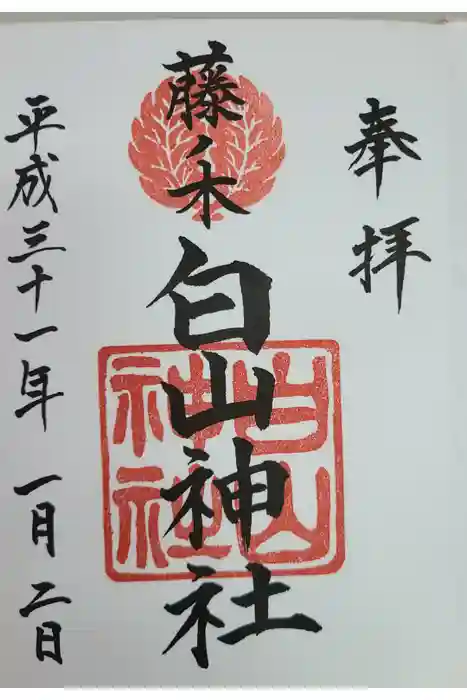 奉拝
藤ノ木
白山神社
白山神社
平成三十一年 一月二日